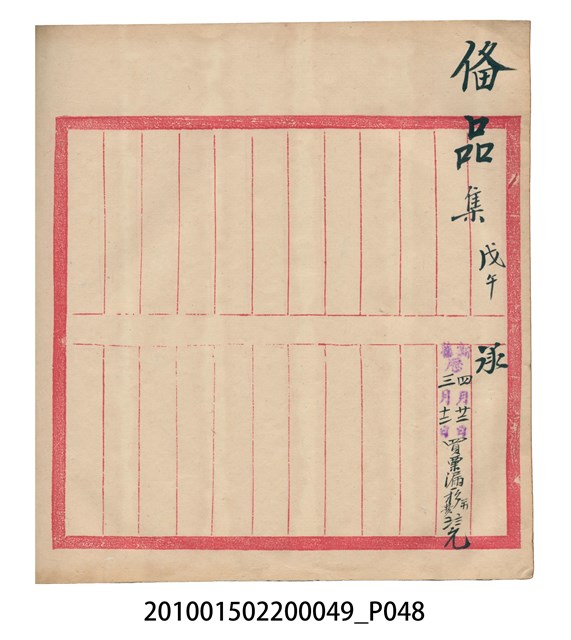 備品集 戊午 承
新曆四月廿二日
舊曆三月十二日
買棗漏
元
201001502200049_P048